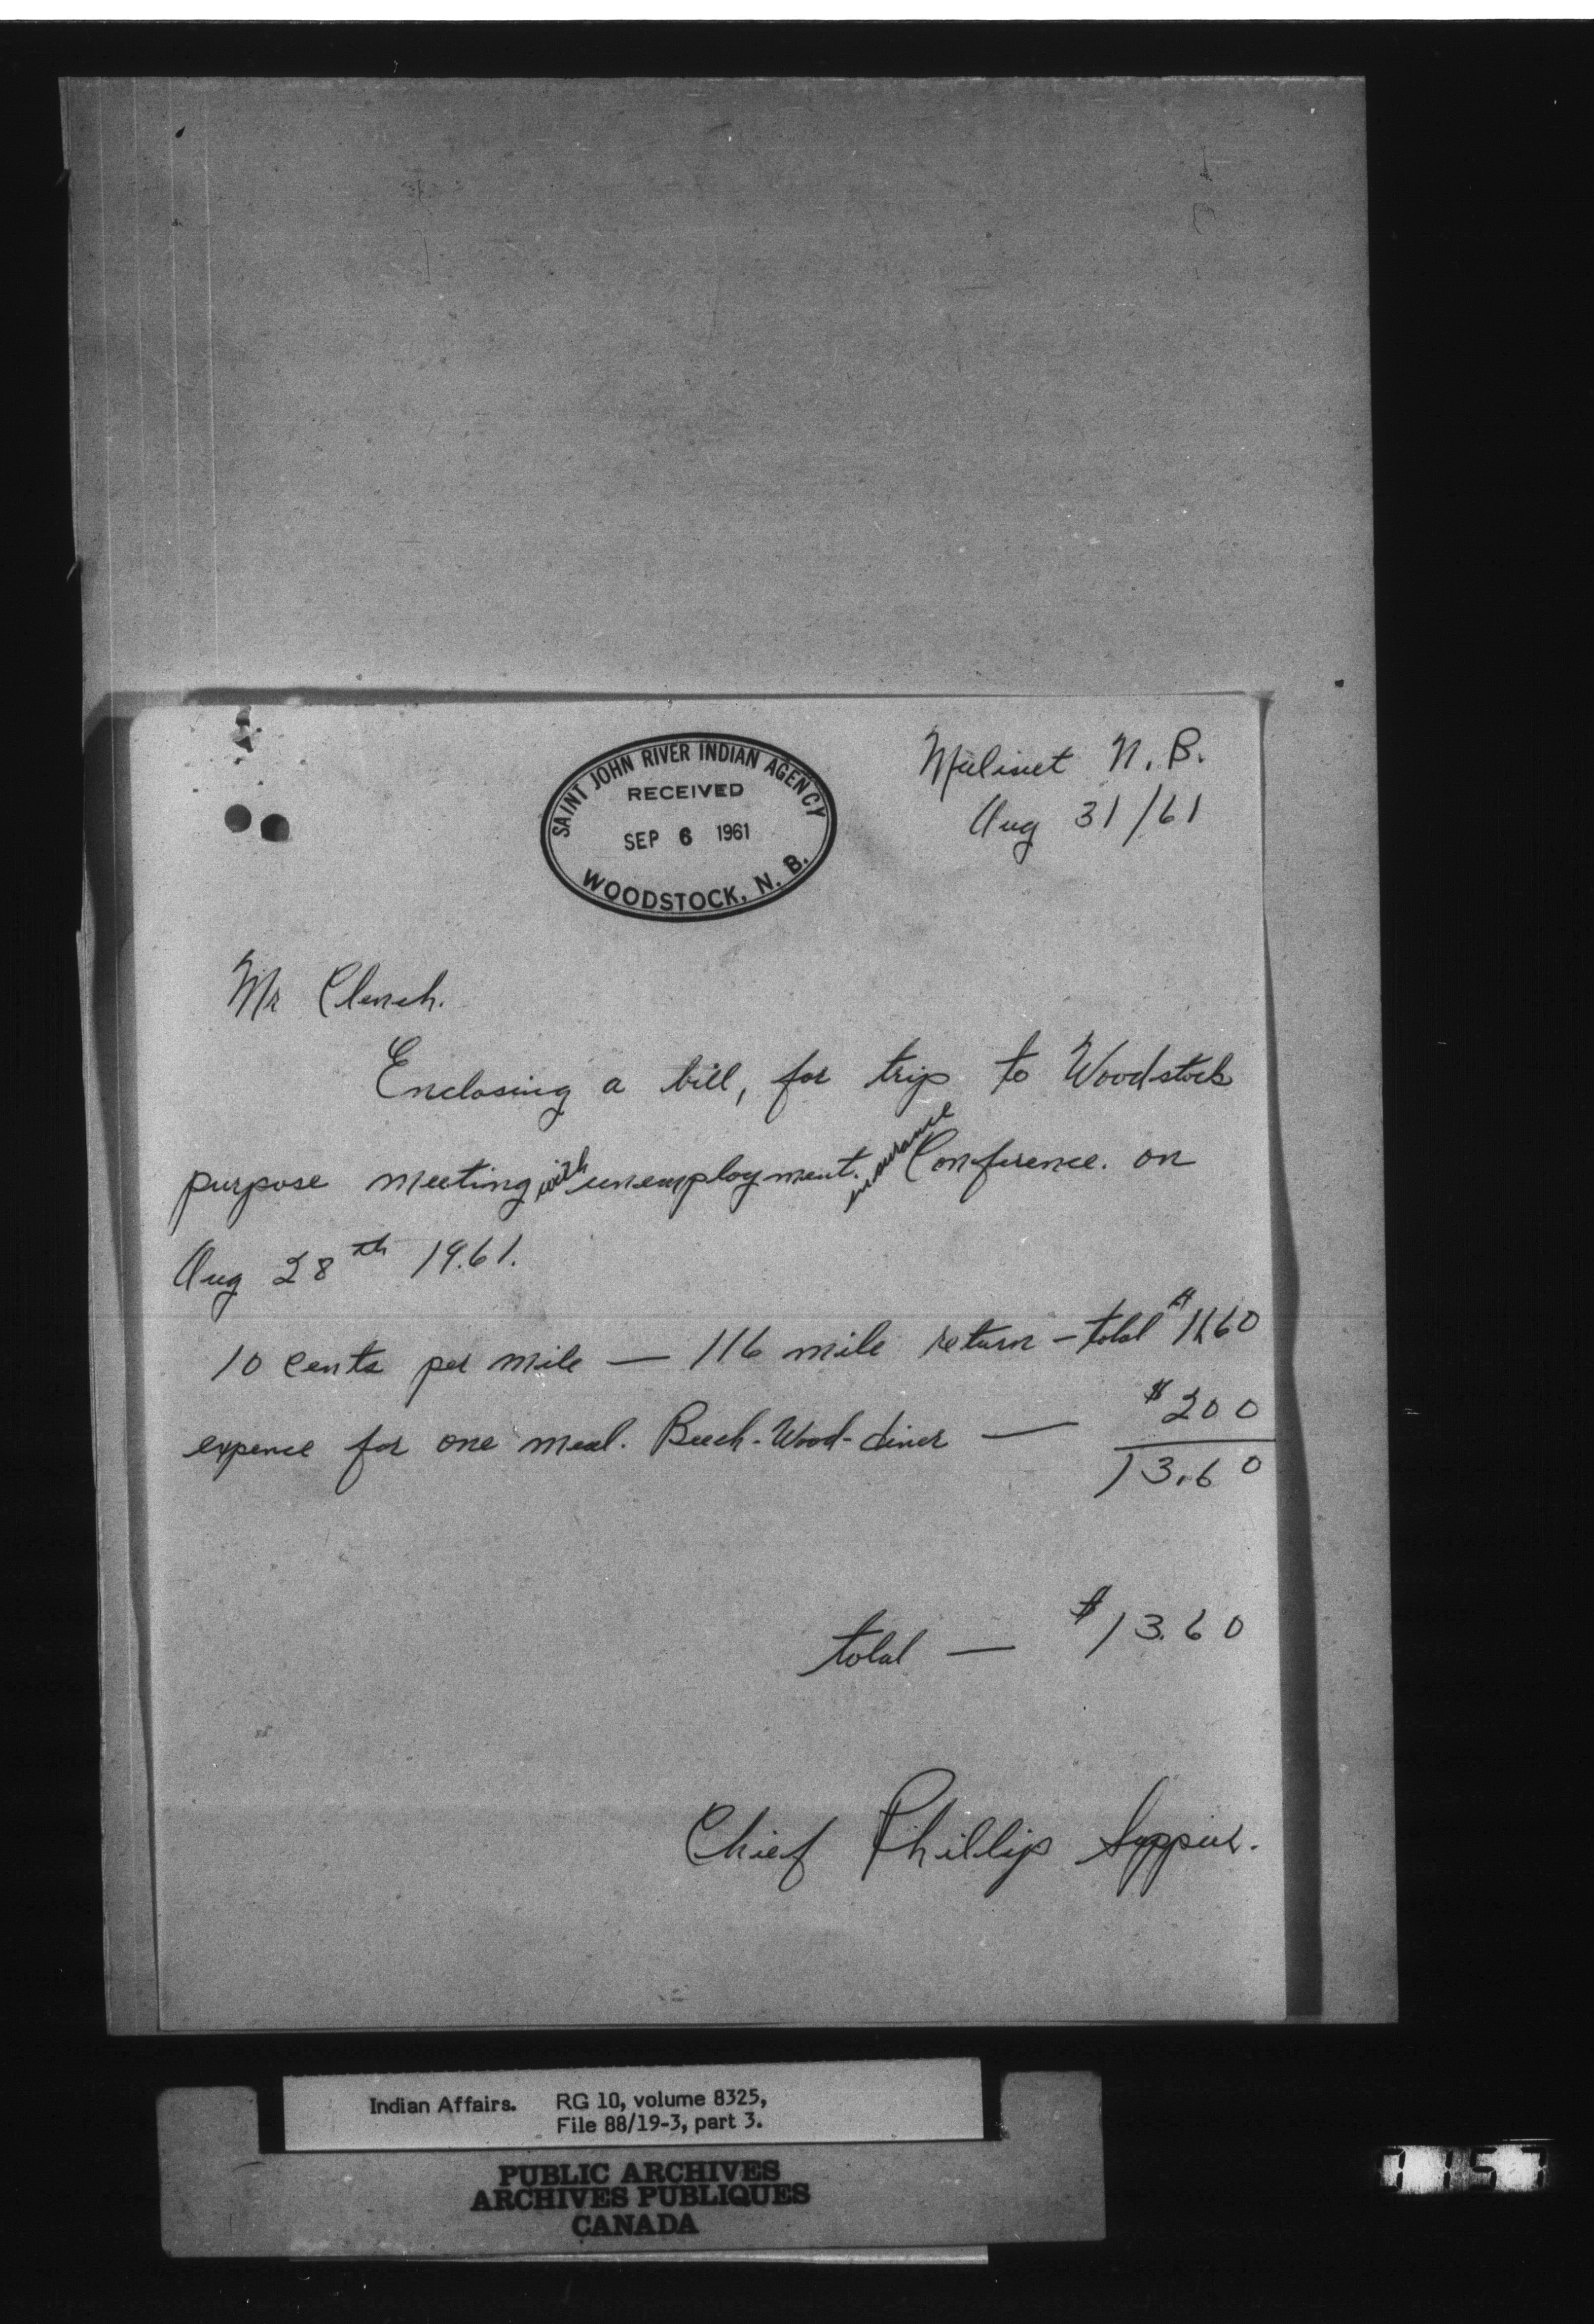 SAINT JOHN RIVER INDIAN AGENCY
RECEIVED
SEP 6 1961
WOODSTOCK, N. B.
Maliset N. B.
Aug 31/61
Mr Clench.
Enclosing a bill, for trip to Woodstock
purpose meeting with unemployment. insurance Conference. on
Aug 28th 19.61.
10 cents per mile — 116 mile return - total $11.60
expence for one meal. Beech-Wood-diner — $200
13.60
total — $13.60
Chief Phillip Sappier.
Indian Affairs. RG 10, volume 8325,
File 88/19-3, part 3.
PUBLIC ARCHIVES
ARCHIVES PUBLIQUES
CANADA